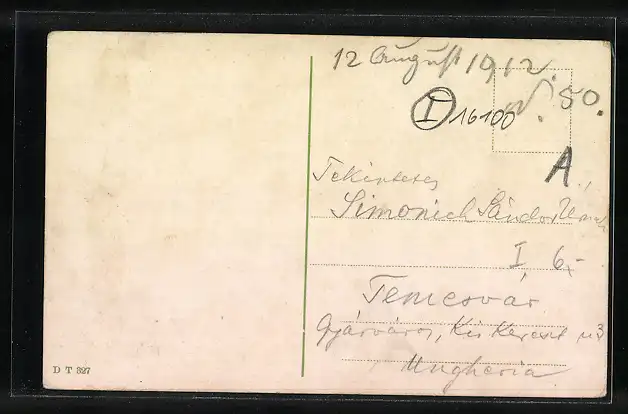 12 August 1912.
50.
I 16100
A
Tekintetes
Simonich Sándor Urnak
I, 6,-
Temesvár
Gyárváros, Kis Kereszt u 3
Ungheria
D T 327